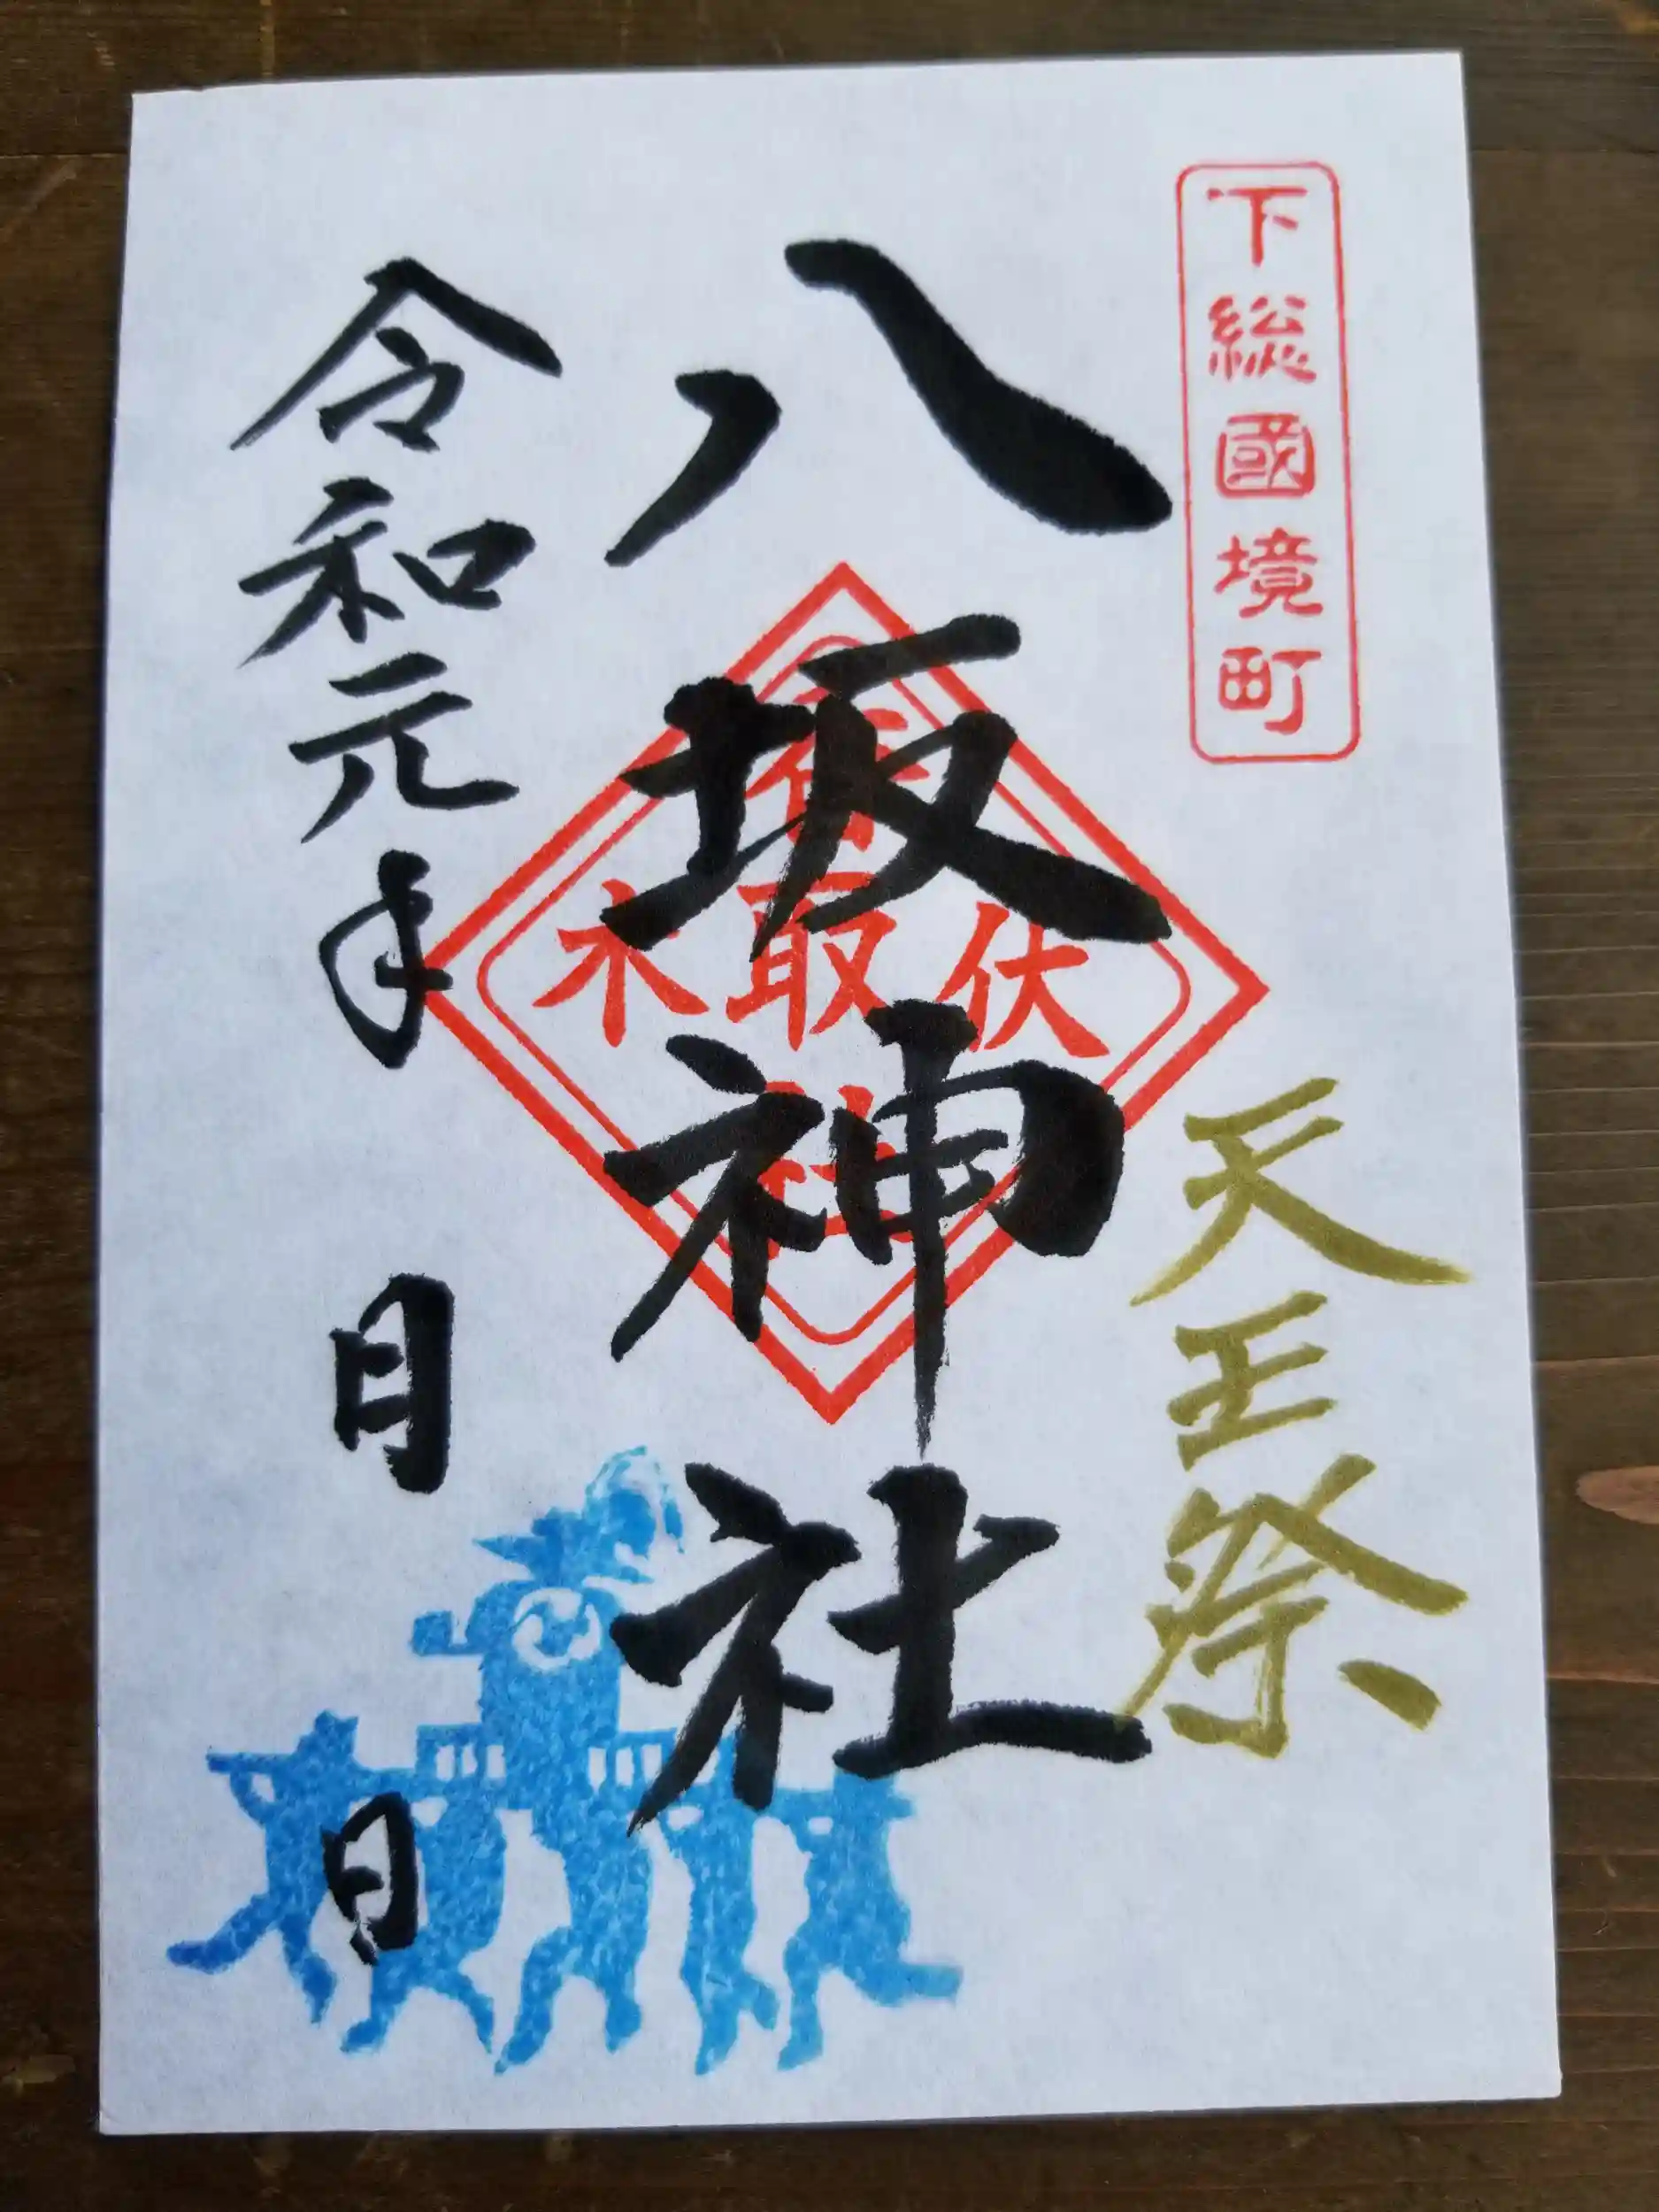 下総國境町
天王祭
八坂神社
伏
取
木
令和元年 月 日